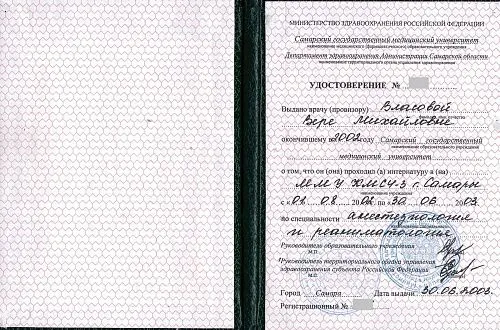 МИНИСТЕРСТВО ЗДРАВООХРАНЕНИЯ РОССИЙСКОЙ ФЕДЕРАЦИИ
Самарский государственный медицинский университет
наименование медицинского (фармацевтического) образовательного учреждения
Департамент здравоохранения Администрации Самарской области
наименование территориального органа управления здравоохранением
УДОСТОВЕРЕНИЕ №
Выдано врачу (провизору) Власовой
Вере Михайловне
окончившему в 2002 году Самарский государственный
наименование образовательного учреждения
медицинский университет
о том, что он (она) проходил (а) интернатуру в (на)
ММУ ХМСЧ-3 г. Самары
с «01 08 2002 по «30 06 2003
по специальности анестезиология
и реаниматология
Руководитель образовательного учреждения
М.П.
Руководитель территориального органа управления
здравоохранения субъекта Российской Федерации
М.П.
Город Самара Дата выдачи 30.06.2003.
Регистрационный №